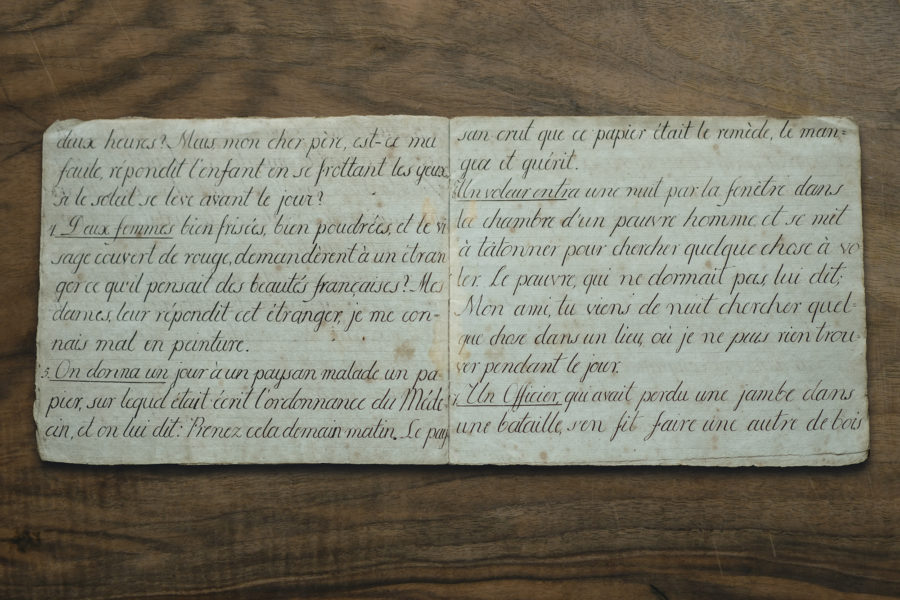 deux heures? Mais mon cher père, est-ce ma
faute, répondit l'enfant en se frottant les yeux,
si le soleil se lève avant le jour?
4. Deux femmes bien frisées, bien poudrées, et le vi
sage couvert de rouge, demandèrent à un étran
ger ce qu'il pensait des beautés françaises? Mes
dames, leur répondit cet étranger, je me con-
nais mal en peinture.
5. On donna un jour à un paysan malade un pa-
pier, sur lequel était écrit l'ordonnance du Méde-
cin, et on lui dit: Prenez cela demain matin. Le pay
san crut que ce papier était le remède, le man-
gea et guérit.
Un voleur entra une nuit par la fenêtre dans
la chambre d'un pauvre homme et se mit
à tâtonner pour chercher quelque chose à vo
ler. Le pauvre, qui ne dormait pas, lui dit;
Mon ami, tu viens de nuit chercher quel-
que chose dans un lieu, où je ne puis rien trou-
ver pendant le jour.
7. Un Officier, qui avait perdu une jambe dans
une bataille, s'en fit faire une autre de bois